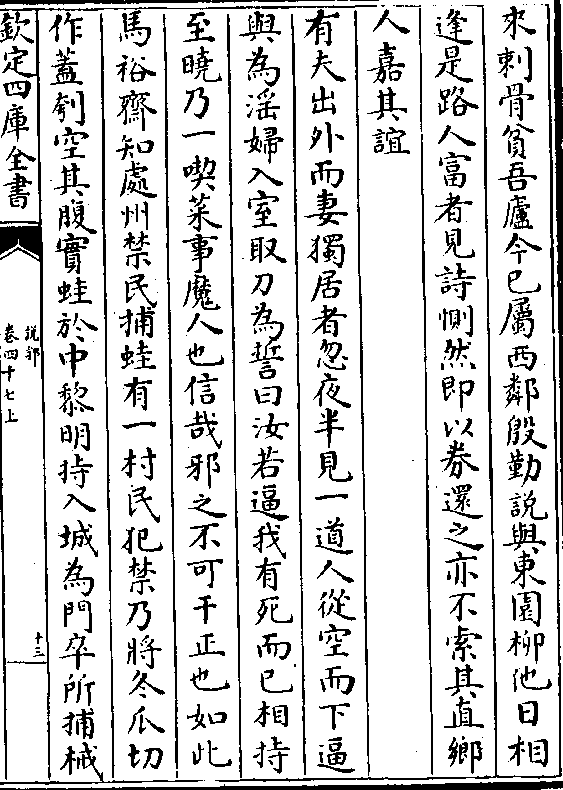 來刺骨貧吾廬今已屬西鄰殷勤說與東園柳他日相
逢是路人富者見詩惻然即以券還之亦不索其直鄉
人嘉其誼
有夫出外而妻獨居者忽夜半見一道人從空而下逼
與為淫婦入室取刀為誓曰汝若逼我有死而已相持
至曉乃一喫菜事魔人也信哉邪之不可干正也如此
馬裕齋知處州禁民捕蛙有一村民犯禁乃將冬瓜切
作蓋刳空其腹實蛙於中黎明持入城為門卒所捕械
欽定四庫全書
說郛
卷四十七上
十三